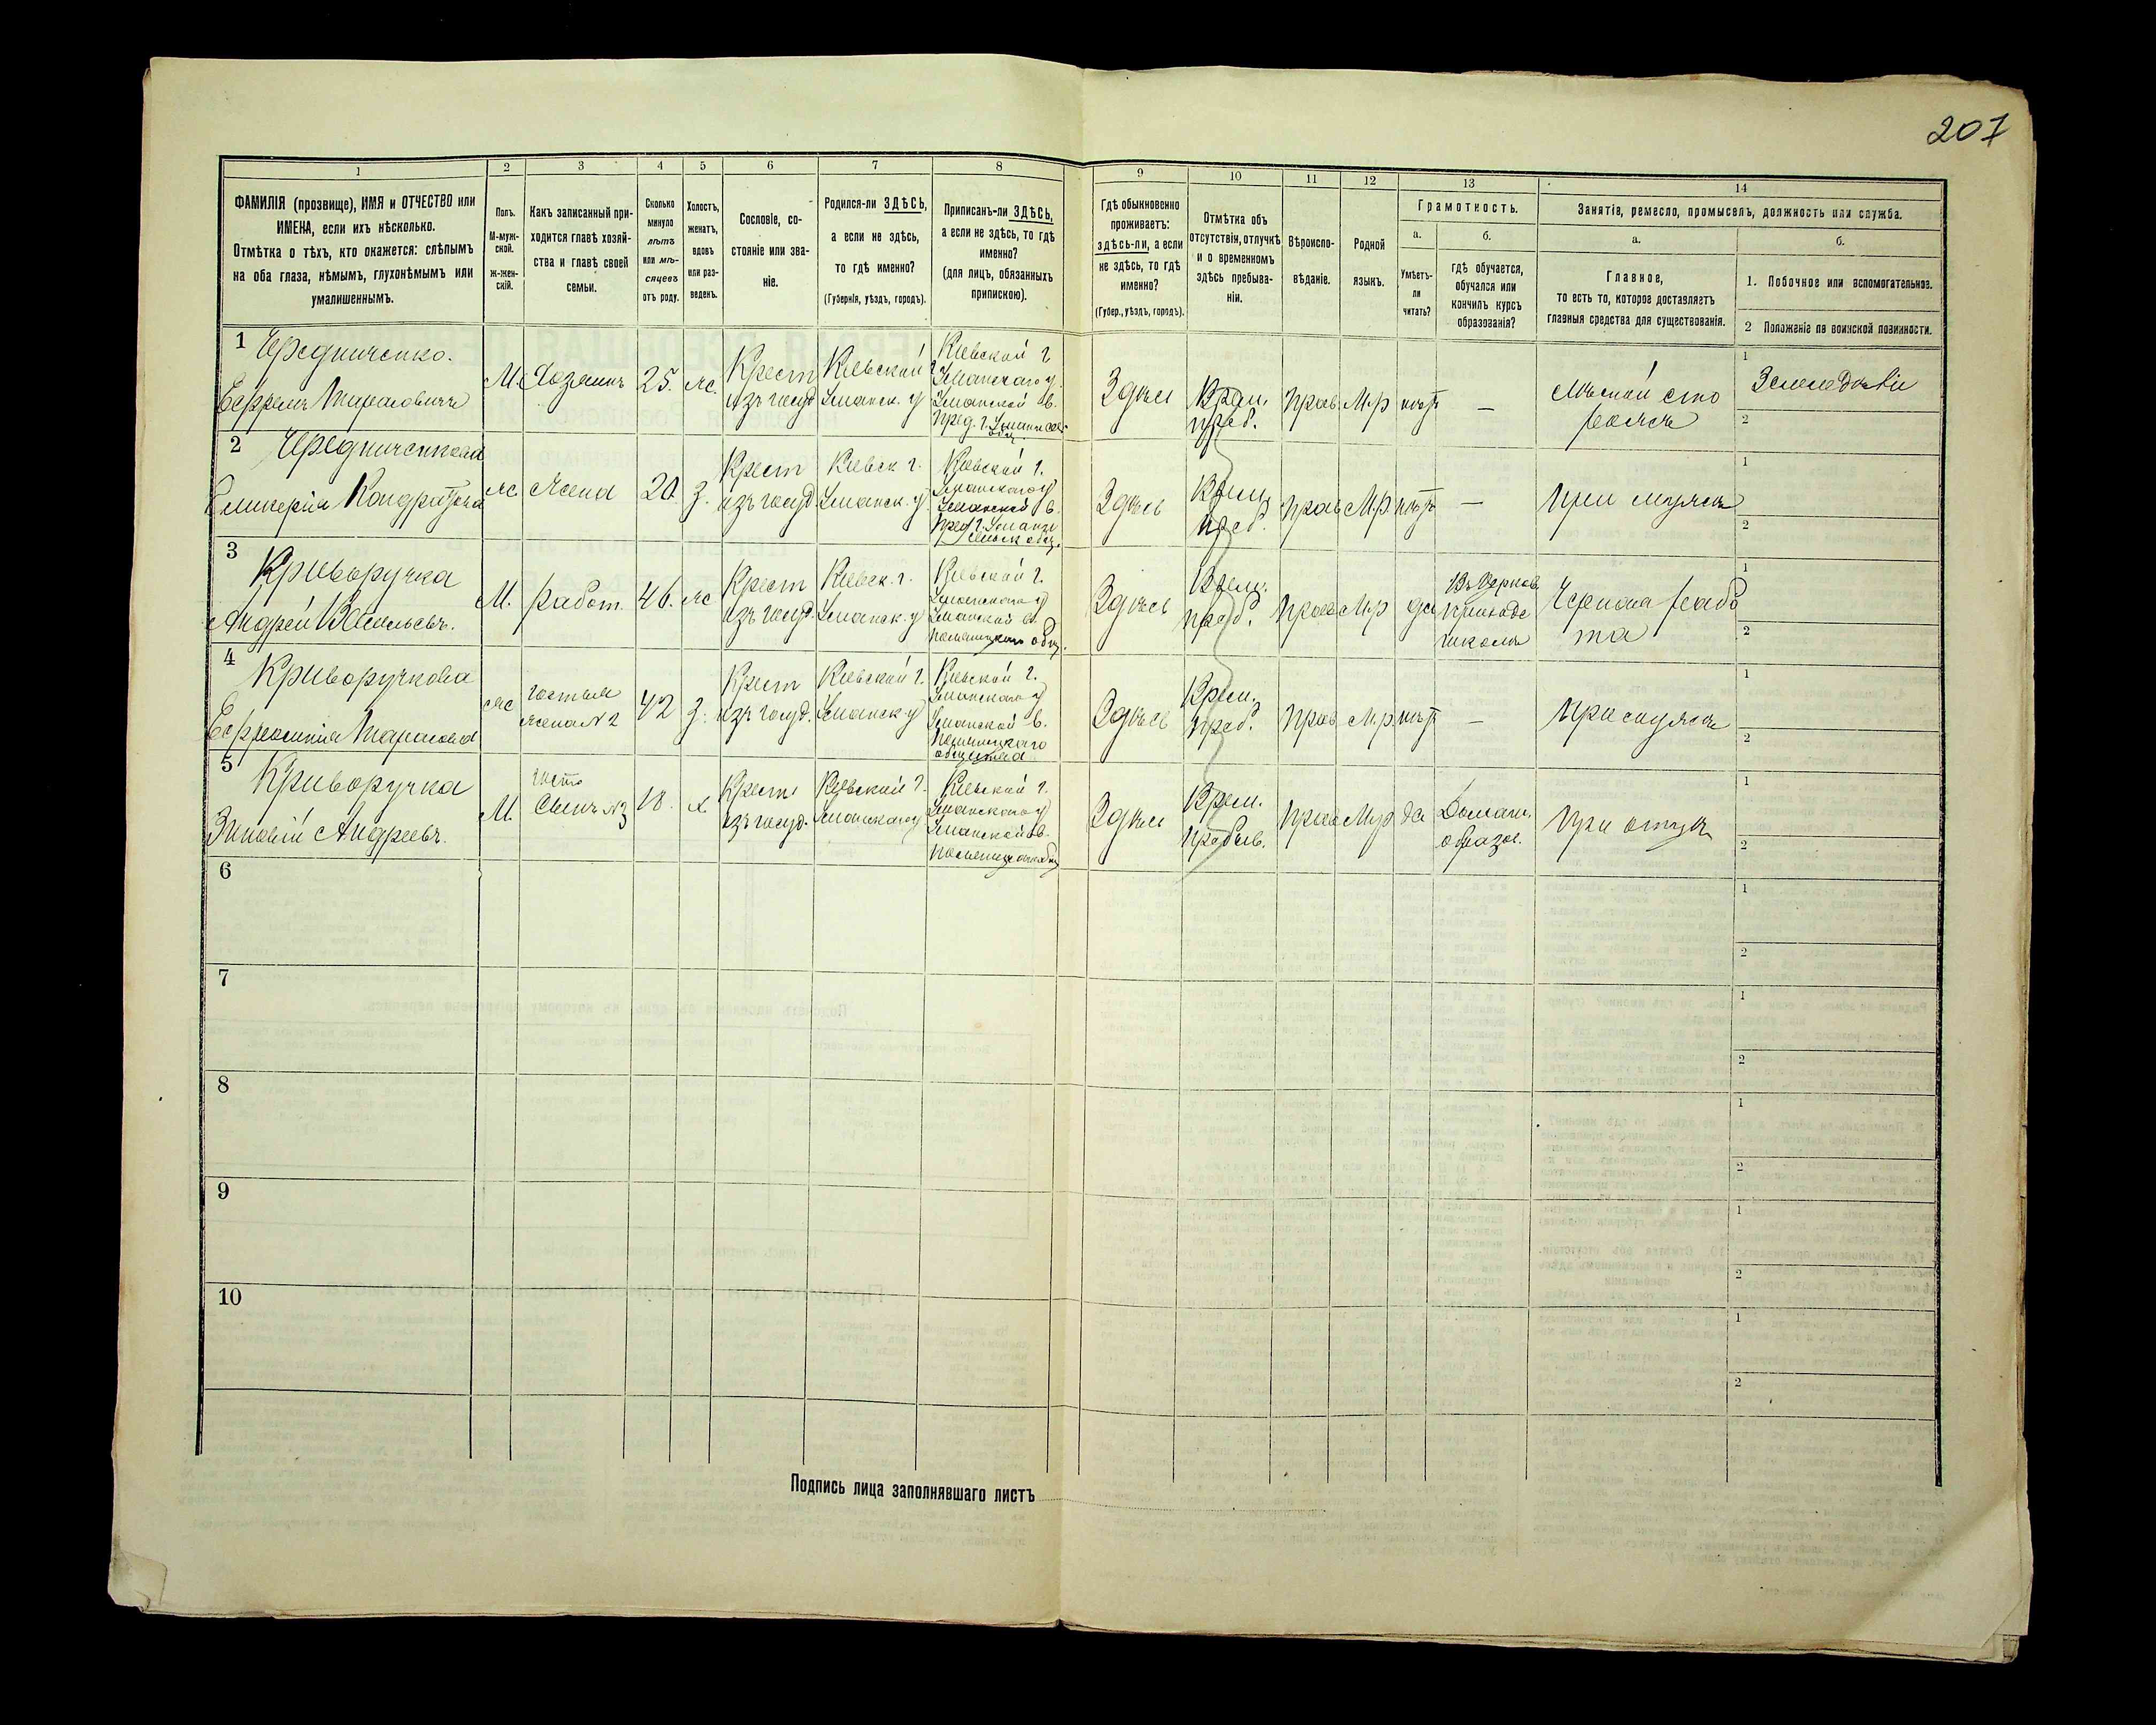 207
1
2
3
4
5
6
7
8
9
10
11
12
13
14
ФАМИЛІЯ (прозвище), ИМЯ и ОТЧЕСТВО или
ИМЕНА, если ихъ нѣсколько.
Отмѣтка о тѣхъ, кто окажется: слѣпымъ
на оба глаза, нѣмымъ, глухонѣмымъ или
умалишеннымъ.
Полъ.
М-муж-
ской.
ж-жен-
скій.
Какъ записанный при-
ходится главѣ хозяй-
ства и главѣ своей
семьи.
Сколько
минуло
лѣтъ
или мѣ-
сяцевъ
отъ роду.
Холостъ,
женатъ,
вдовъ
или раз-
веденъ.
Сословіе, со-
стояніе или зва-
ніе.
Родился-ли ЗДѢСЬ,
а если не здѣсь,
то гдѣ именно?
(Губернія, уѣздъ, городъ).
Приписанъ-ли ЗДѢСЬ,
а если не здѣсь, то гдѣ
именно?
(для лицъ, обязанныхъ
припискою).
Гдѣ обыкновенно
проживаетъ:
здѣсь-ли, а если
не здѣсь, то гдѣ
именно?
(Губер., уѣздъ, городъ).
Отмѣтка объ
отсутствіи, отлучкѣ
и о временномъ
здѣсь пребыва-
ніи.
Вѣроиспо-
вѣданіе.
Родной
языкъ.
Грамотность.
а.
Умѣетъ-
ли
читать?
б.
гдѣ обучается,
обучался или
кончилъ курсъ
образованія?
Занятіе, ремесло, промыселъ, должность или служба.
а.
Главное,
то есть то, которое доставляетъ
главныя средства для существованія.
б.
1. Побочное или вспомогательное.
2 Положеніе по воинской повинности.
1 Чередниченко.
Ефремъ Тарасовичъ
М. Хозяинъ 25. ж.
Крест
изъ госуд.
Кіевской г.
Уманск. у
Кіевской г.
Уманского у.
Уманской в.
Здѣсь
Врем.
преб.
Прав. М.р нѣтъ —
Лѣсной сто
рожъ
1 Земледѣліе
2
2 Чередниченкова
Кондратьева
ж. Жена 20. з.
Крест
изъ госуд.
Кіевск. г.
Уманск. у.
Кіевской г.
Уманского у
Уманской в.
Здѣсь
Врем.
преб.
Прав М.р. нѣтъ —
При мужѣ
1
2
3 Криворучка
Андрей Васильевъ.
М. работ. 46. ж
Крест
изъ госуд.
Кіевск. г.
Уманск. у
Кіевской г.
Уманского у
Уманской в.
Здѣсь
Врем.
преб.
Прав М.р да
Въ Церков
приходс
школѣ
Черная рабо
та
1
2
4 Криворучкова
Ефросинія Тарасова
ж жена №2 42 з.
Крест
изъ госуд.
Кіевской г.
Уманск. у
Кіевской г.
Уманского у
Уманской в.
Здѣсь
Врем.
преб.
Прав М.р. нѣтъ —
При мужѣ
1
2
5 Криворучка
Зиновій Андреевъ.
М. Сынъ №3 18. х
Крест.
изъ госуд.
Кіевской г.
Уманского у
Кіевской г.
Уманского у
Уманской в.
Здѣсь
Врем.
пребыв.
Прав М.р да
Домаш.
образов.
При отцѣ
1
2
6
1
2
7
1
2
8
1
2
9
1
2
10
1
2
Подпись лица заполнявшаго листъ